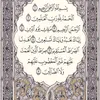 بِسْمِ اللَّهِ الرَّحْمَٰنِ الرَّحِيمِ
الْحَمْدُ لِلَّهِ رَبِّ الْعَالَمِينَ
الرَّحْمَٰنِ الرَّحِيمِ مَالِكِ يَوْمِ
الدِّينِ إِيَّاكَ نَعْبُدُ وَإِيَّاكَ
نَسْتَعِينُ اهْدِنَا الصِّرَاطَ
الْمُسْتَقِيمَ صِرَاطَ الَّذِينَ أَنْعَمْتَ
عَلَيْهِمْ غَيْرِ الْمَغْضُوبِ عَلَيْهِمْ
وَلَا الضَّالِّينَ